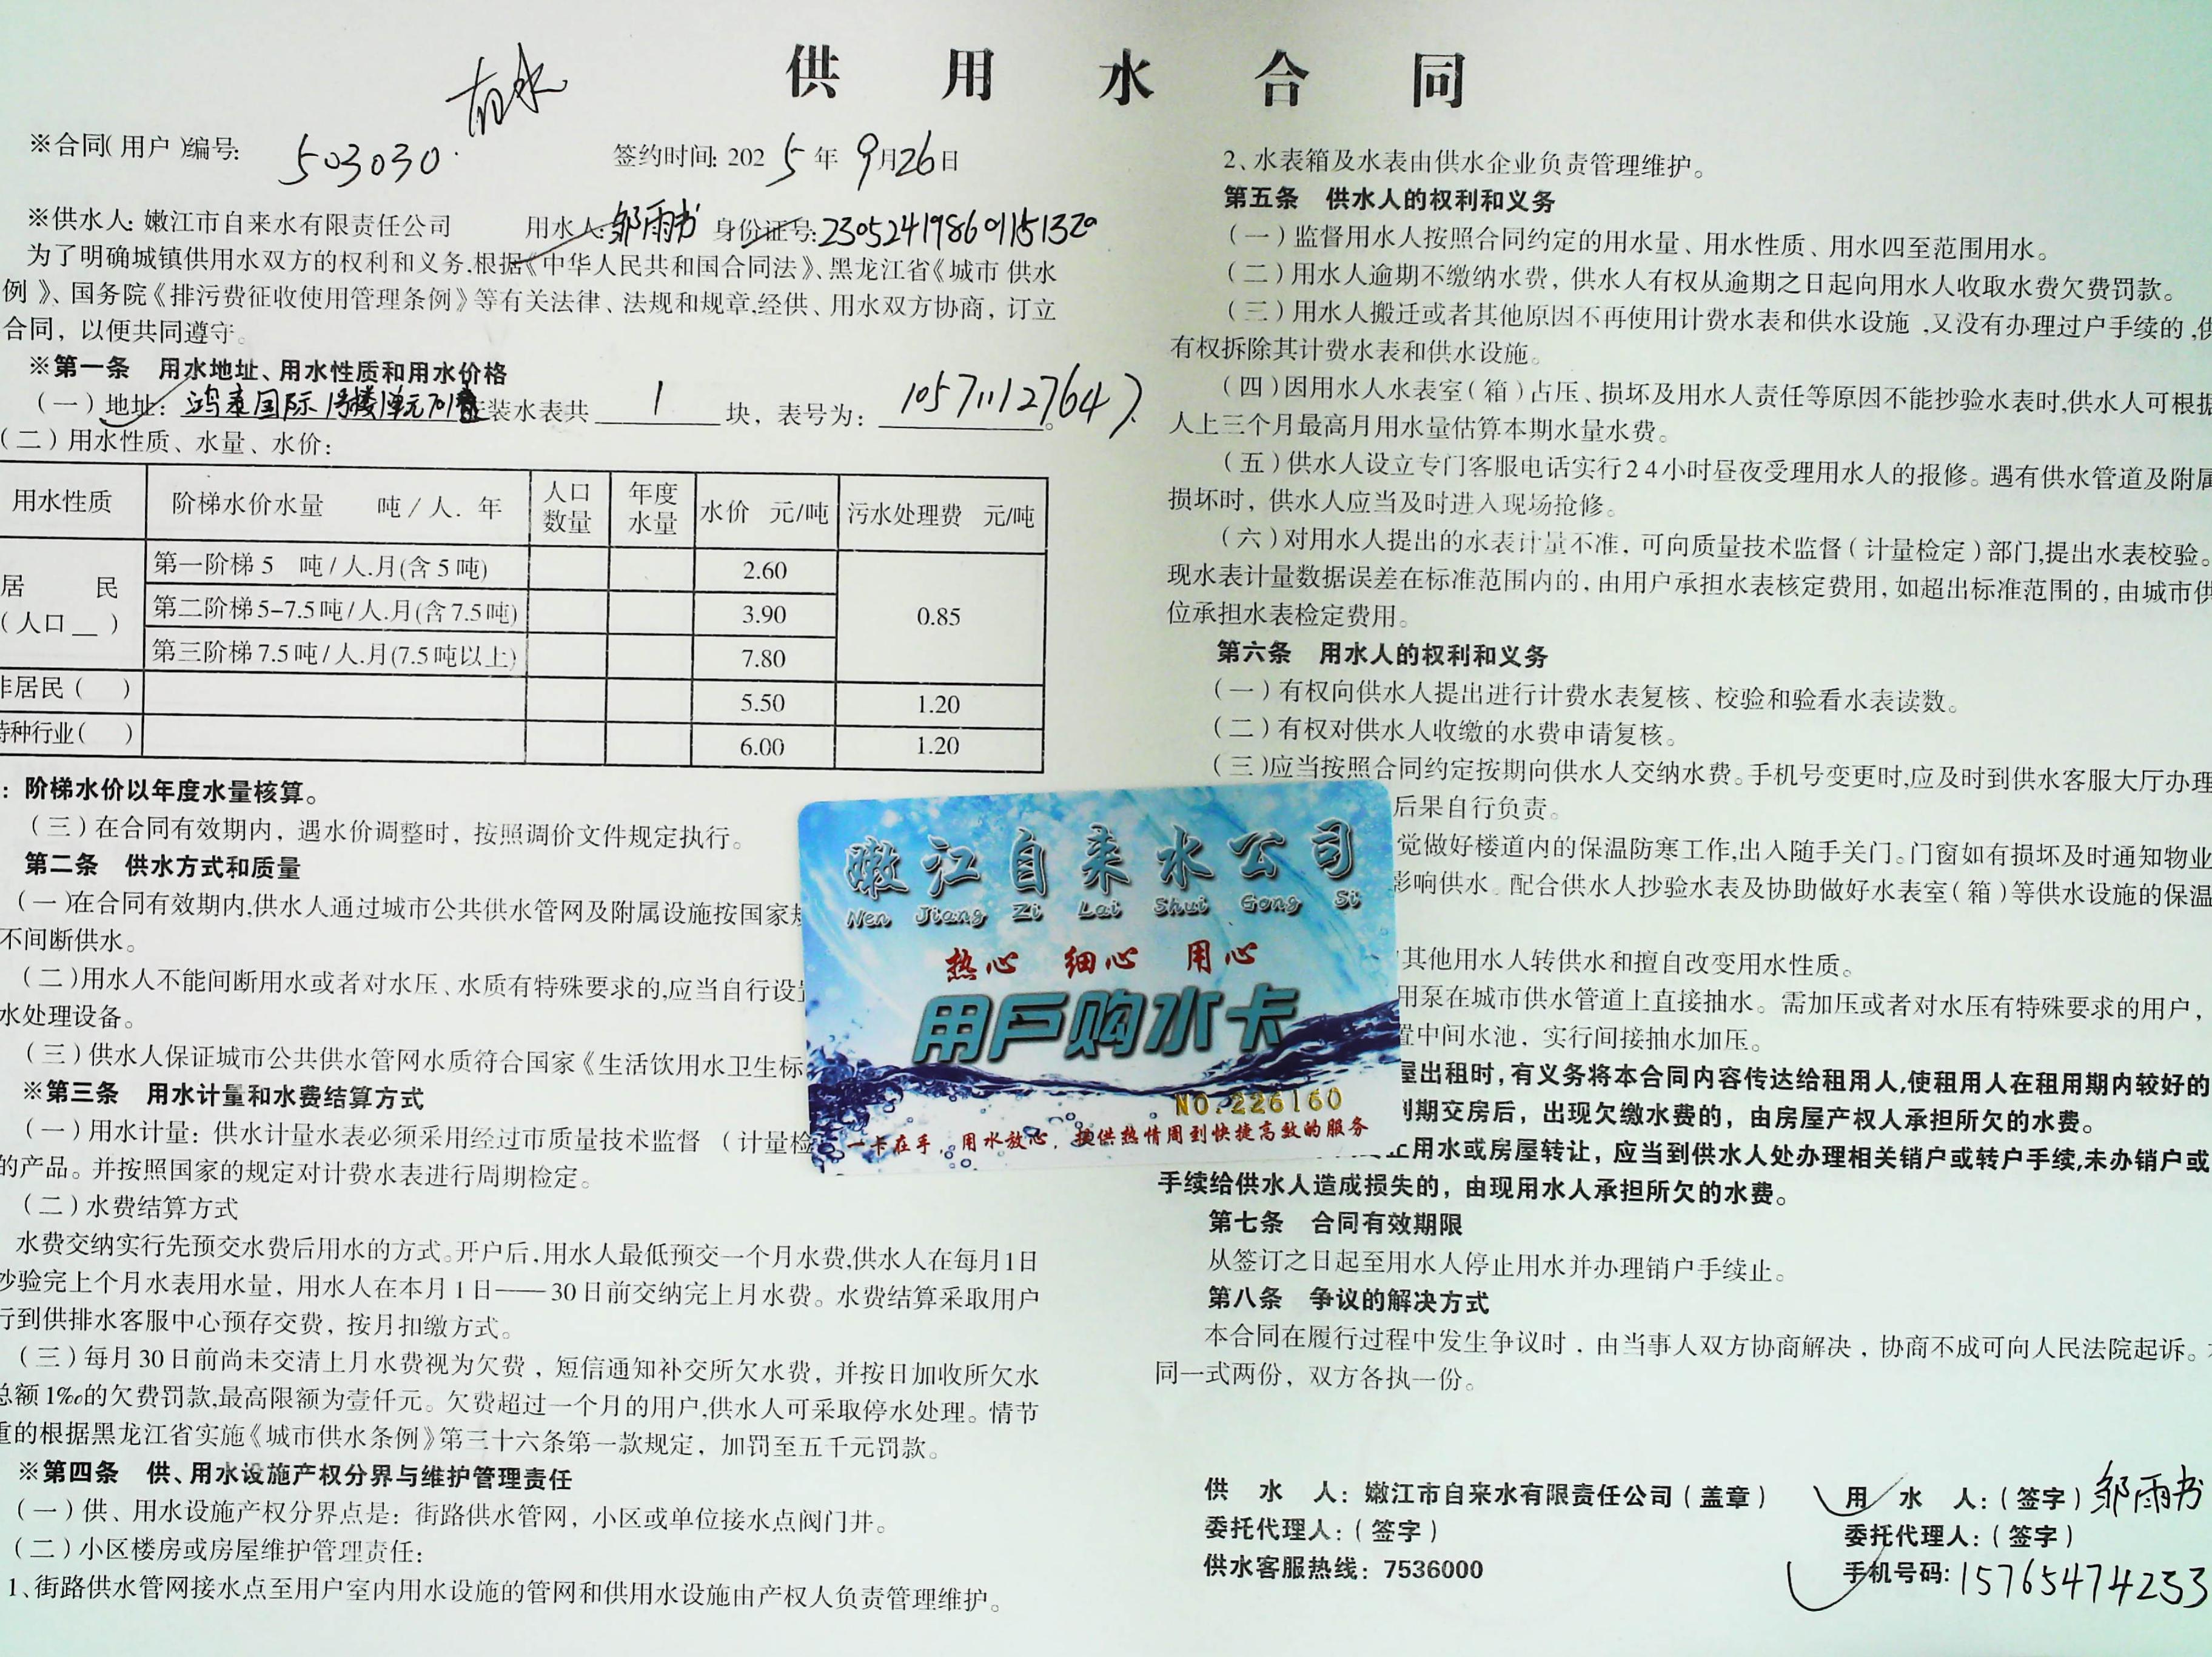 供用水合同
有水
※合同(用户)编号: 503030.
签约时间: 2025年9月26日
※供水人: 嫩江市自来水有限责任公司 用水人: 邹雨书 身份证号: 230524198601151320
为了明确城镇供用水双方的权利和义务,根据《中华人民共和国合同法》、黑龙江省《城市 供水
例》、国务院《排污费征收使用管理条例》等有关法律、法规和规章,经供、用水双方协商，订立
合同，以便共同遵守。
※第一条 用水地址、用水性质和用水价格
(一)地址: 鸿泰国际1号楼1单元701 装水表共 1 块，表号为: 105711127647
(二)用水性质、水量、水价:
用水性质 阶梯水价水量 吨/人. 年 人口数量 年度水量 水价 元/吨 污水处理费 元/吨
居 民
(人口__)
第一阶梯5 吨/人.月(含5吨) 2.60
第二阶梯5-7.5吨/人.月(含7.5吨) 3.90 0.85
第三阶梯7.5吨/人.月(7.5吨以上) 7.80
非居民( ) 5.50 1.20
特种行业( ) 6.00 1.20
: 阶梯水价以年度水量核算。
(三)在合同有效期内，遇水价调整时，按照调价文件规定执行。
第二条 供水方式和质量
(一)在合同有效期内,供水人通过城市公共供水管网及附属设施按国家
不间断供水。
(二)用水人不能间断用水或者对水压、水质有特殊要求的,应当自行设
水处理设备。
(三)供水人保证城市公共供水管网水质符合国家《生活饮用水卫生标
※第三条 用水计量和水费结算方式
(一)用水计量: 供水计量水表必须采用经过市质量技术监督 (计量检
的产品。并按照国家的规定对计费水表进行周期检定。
(二)水费结算方式
水费交纳实行先预交水费后用水的方式。开户后,用水人最低预交一个月水费,供水人在每月1日
抄验完上个月水表用水量，用水人在本月1日——30日前交纳完上月水费。水费结算采取用户
行到供排水客服中心预存交费，按月扣缴方式。
(三)每月30日前尚未交清上月水费视为欠费，短信通知补交所欠水费，并按日加收所欠水
总额1‰的欠费罚款,最高限额为壹仟元。欠费超过一个月的用户,供水人可采取停水处理。情节
重的根据黑龙江省实施《城市供水条例》第三十六条第一款规定，加罚至五千元罚款。
※第四条 供、用水设施产权分界与维护管理责任
(一)供、用水设施产权分界点是: 街路供水管网，小区或单位接水点阀门井。
(二)小区楼房或房屋维护管理责任:
1、街路供水管网接水点至用户室内用水设施的管网和供用水设施由产权人负责管理维护。
2、水表箱及水表由供水企业负责管理维护。
第五条 供水人的权利和义务
(一)监督用水人按照合同约定的用水量、用水性质、用水四至范围用水。
(二)用水人逾期不缴纳水费，供水人有权从逾期之日起向用水人收取水费欠费罚款。
(三)用水人搬迁或者其他原因不再使用计费水表和供水设施,又没有办理过户手续的,供
有权拆除其计费水表和供水设施。
(四)因用水人水表室(箱)占压、损坏及用水人责任等原因不能抄验水表时,供水人可根据
人上三个月最高月用水量估算本期水量水费。
(五)供水人设立专门客服电话实行24小时昼夜受理用水人的报修。遇有供水管道及附属
损坏时，供水人应当及时进入现场抢修。
(六)对用水人提出的水表计量不准，可向质量技术监督(计量检定)部门,提出水表校验。
现水表计量数据误差在标准范围内的，由用户承担水表核定费用，如超出标准范围的，由城市供
位承担水表检定费用。
第六条 用水人的权利和义务
(一)有权向供水人提出进行计费水表复核、校验和验看水表读数。
(二)有权对供水人收缴的水费申请复核。
(三)应当按照合同约定按期向供水人交纳水费。手机号变更时,应及时到供水客服大厅办理
后果自行负责。
觉做好楼道内的保温防寒工作,出入随手关门。门窗如有损坏及时通知物业
影响供水。配合供水人抄验水表及协助做好水表室(箱)等供水设施的保温
其他用水人转供水和擅自改变用水性质。
用泵在城市供水管道上直接抽水。需加压或者对水压有特殊要求的用户，
置中间水池，实行间接抽水加压。
屋出租时,有义务将本合同内容传达给租用人,使租用人在租用期内较好的
期交房后，出现欠缴水费的，由房屋产权人承担所欠的水费。
止用水或房屋转让，应当到供水人处办理相关销户或转户手续,未办销户或
手续给供水人造成损失的，由现用水人承担所欠的水费。
第七条 合同有效期限
从签订之日起至用水人停止用水并办理销户手续止。
第八条 争议的解决方式
本合同在履行过程中发生争议时，由当事人双方协商解决，协商不成可向人民法院起诉。
同一式两份，双方各执一份。
嫩江自来水公司
Nen Jiang Zi Lai Shui Gong Si
热心 细心 用心
用户购水卡
NO.226160
一卡在手，用水放心，提供热情周到快捷高效的服务
供 水 人: 嫩江市自来水有限责任公司(盖章)
委托代理人: (签字)
供水客服热线: 7536000
用 水 人: (签字) 邹雨书
委托代理人: (签字)
手机号码: 15765474233